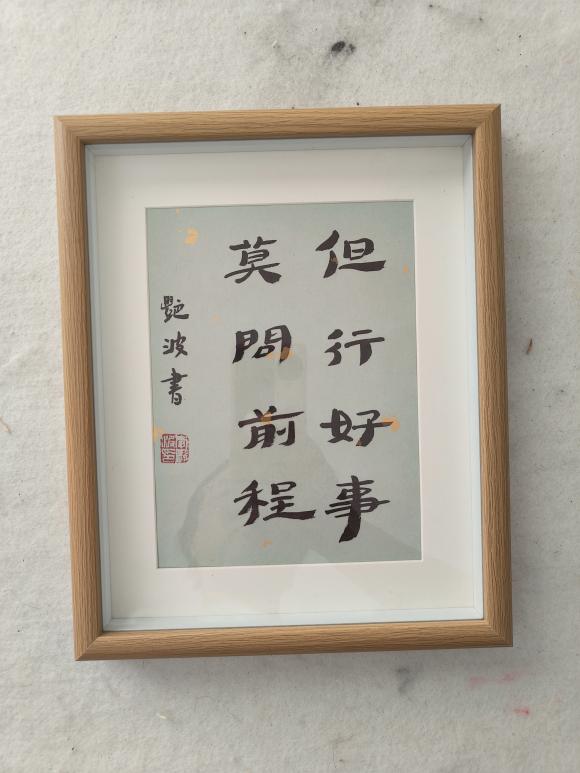 但行好事
莫問前程
艷波書